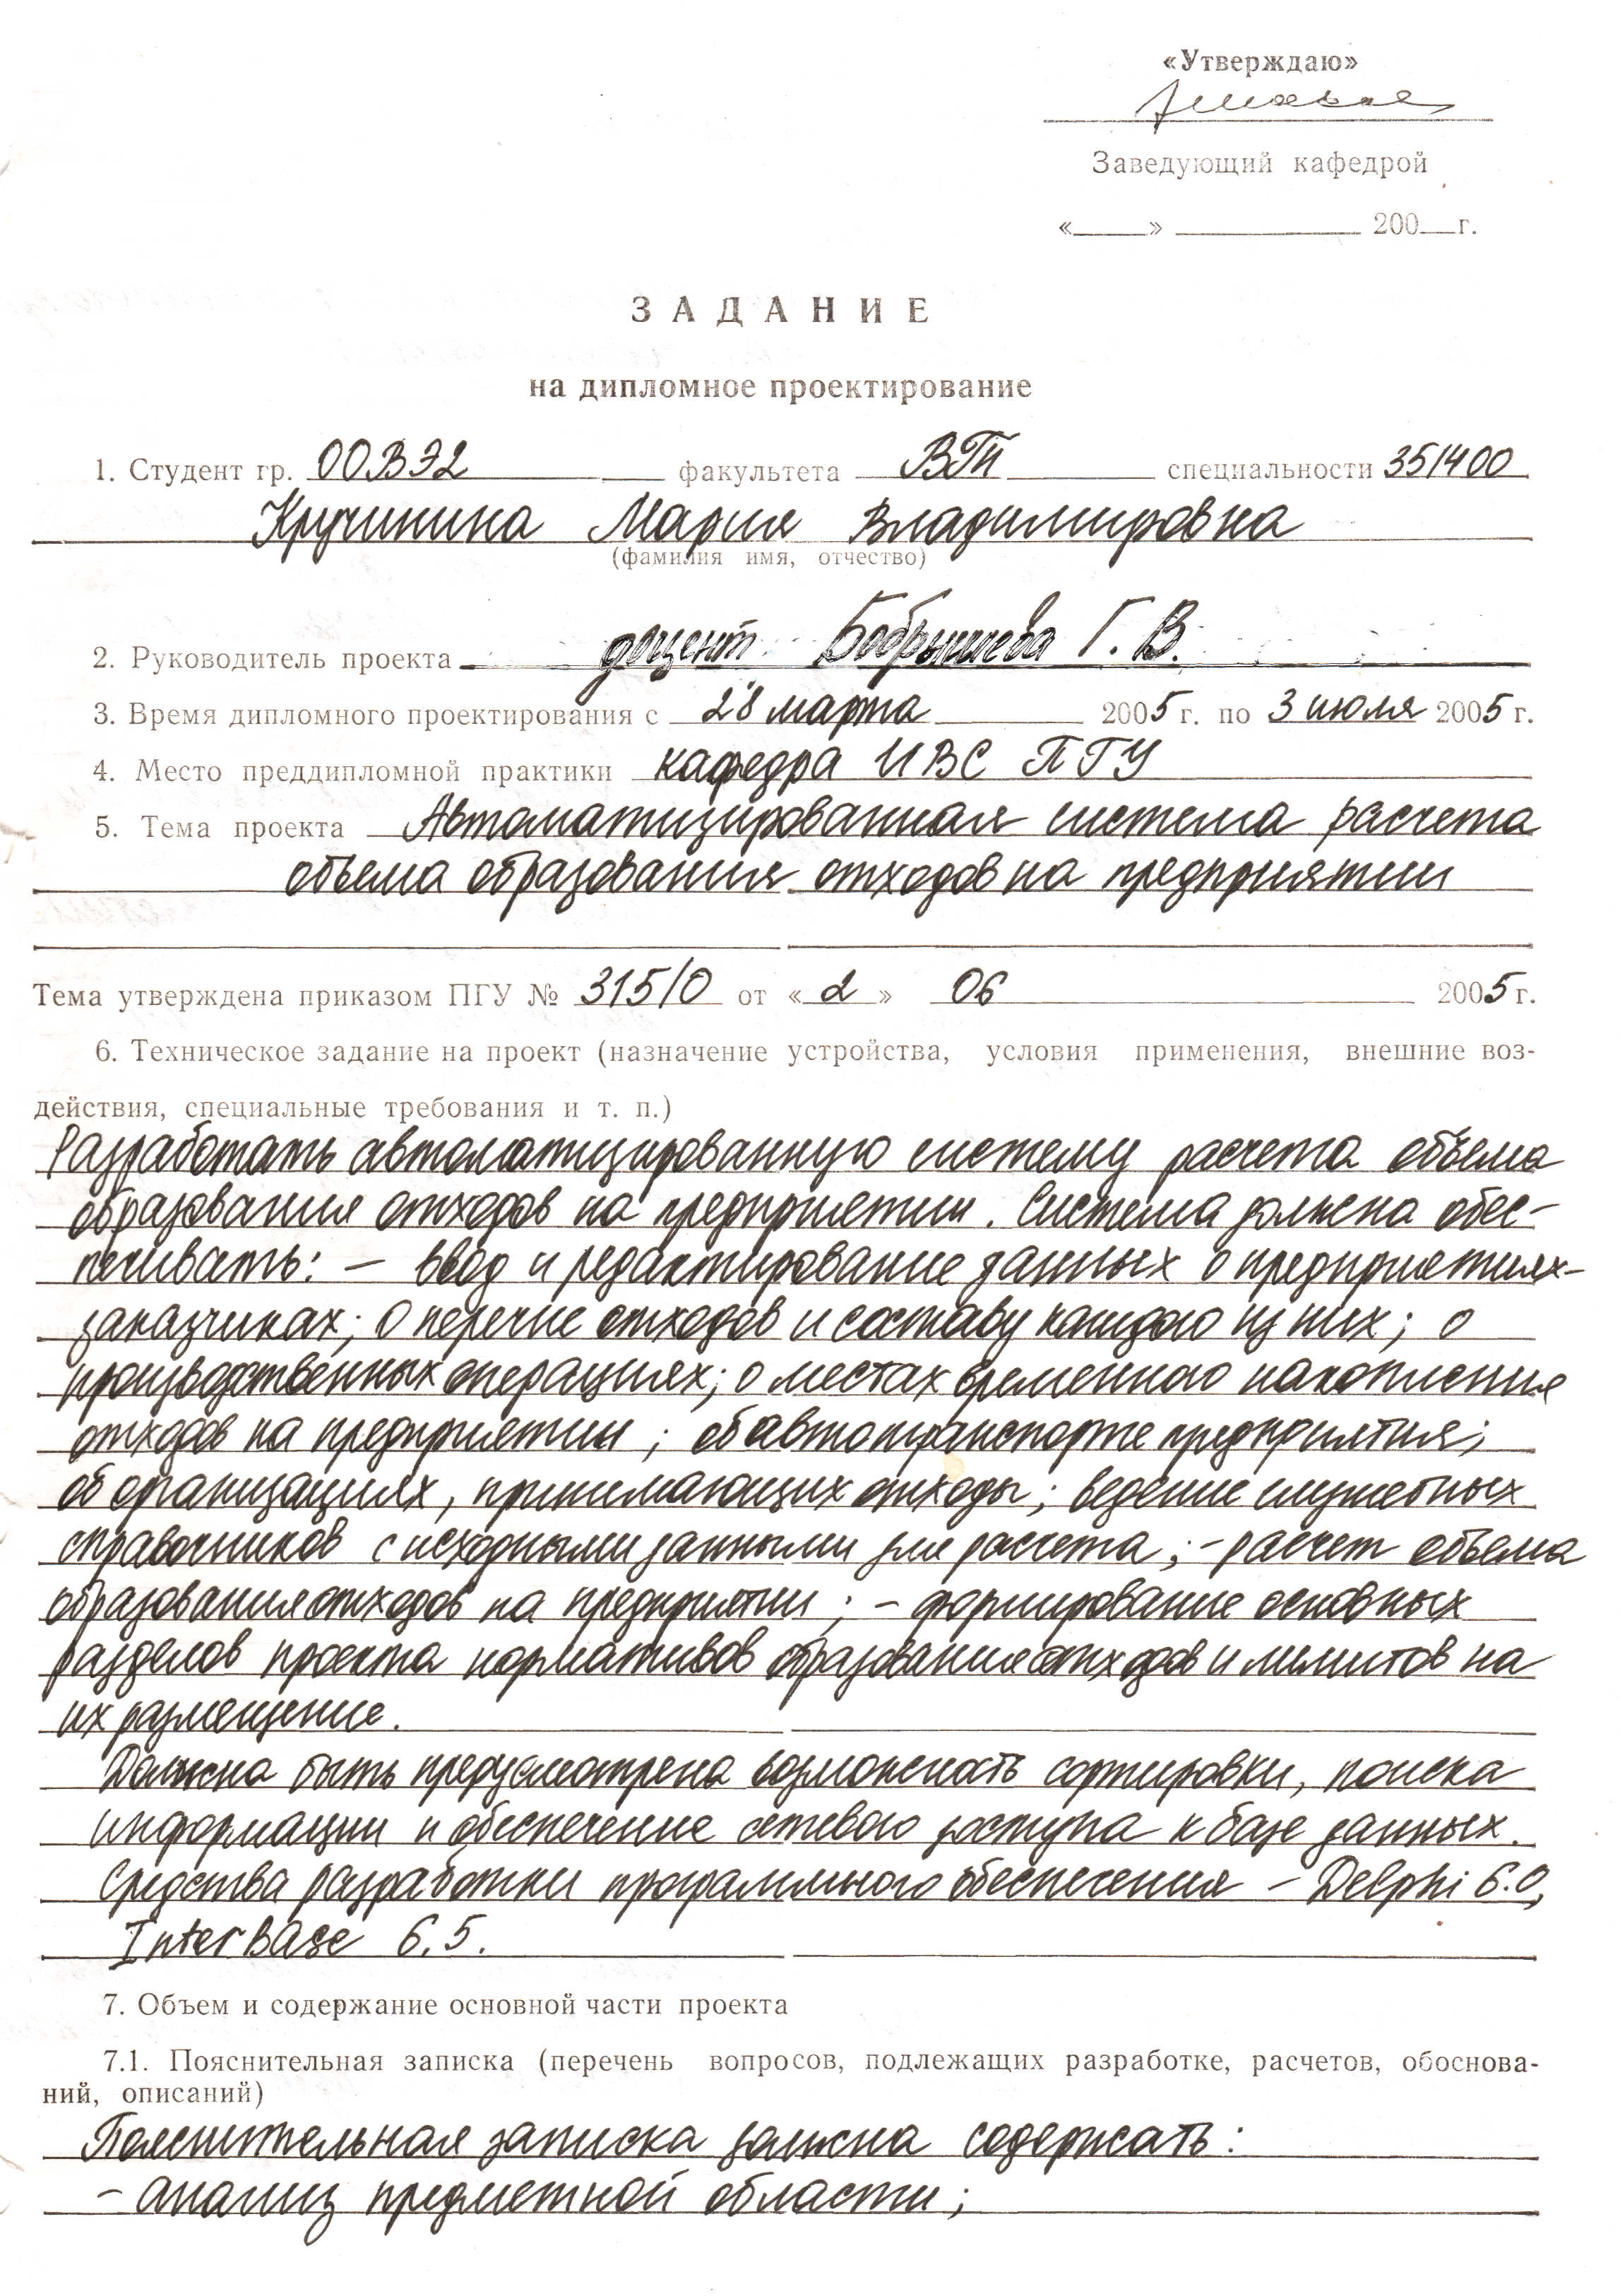 «Утверждаю»
Заведующий кафедрой
«____» ________ 200__г.
ЗАДАНИЕ
на дипломное проектирование
1. Студент гр. 00ВЭ2 факультета ВТ специальности 351400
Кручинина Мария Владимировна
(фамилия имя, отчество)
2. Руководитель проекта доцент Бобрышева Г. В.
3. Время дипломного проектирования с 28 марта 2005 г. по 3 июля 2005 г.
4. Место преддипломной практики кафедра ИВС ПГУ
5. Тема проекта Автоматизированная система расчета
объема образования отходов на предприятии
Тема утверждена приказом ПГУ № 315/0 от «2» 06 2005 г.
6. Техническое задание на проект (назначение устройства, условия применения, внешние воз-
действия, специальные требования и т. п.)
Разработать автоматизированную систему расчета объема
образования отходов на предприятии. Система должна обес-
печивать: – ввод и редактирование данных о предприятиях-
заказчиках; о перечне отходов и составу каждого из них; о
производственных операциях; о местах временного накопления
отходов на предприятии; об автотранспорте предприятия;
об организациях, принимающих отходы; ведение служебных
справочников с исходными данными для расчета; – расчет объема
образования отходов на предприятии; – формирование основных
разделов проекта нормативов образования отходов и лимитов на
их размещение.
Должна быть предусмотрена возможность сортировки, поиска
информации и обеспечение сетевого доступа к базе данных.
Средства разработки программного обеспечения – Delphi 6.0,
InterBase 6.5.
7. Объем и содержание основной части проекта
7.1. Пояснительная записка (перечень вопросов, подлежащих разработке, расчетов, обоснова-
ний, описаний)
Пояснительная записка должна содержать:
– анализ предметной области;